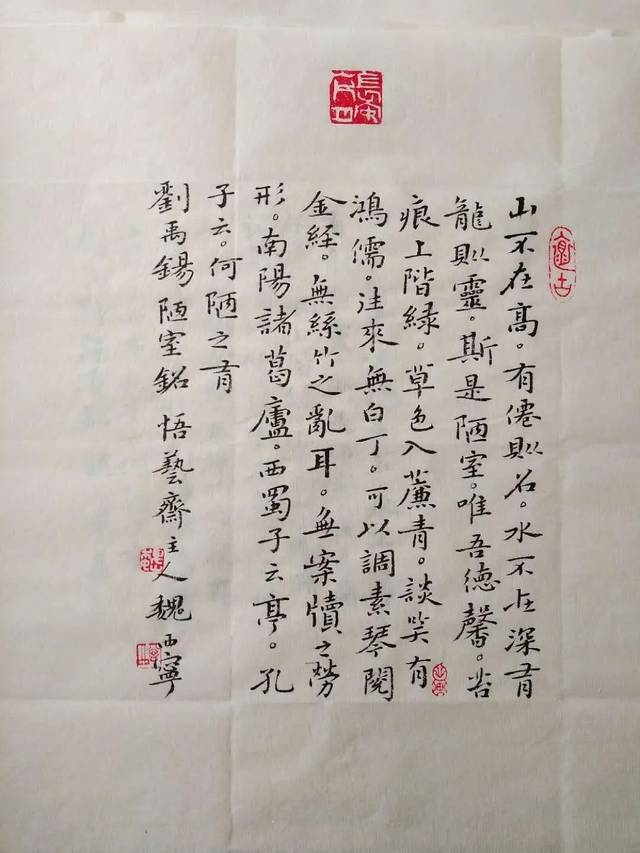 山不在高。有僊則名。水不在深有
龍則靈。斯是陋室。唯吾德馨。苔
痕上階緑。草色入簾青。談笑有
鴻儒。往來無白丁。可以調素琴閱
金経。無絲竹之亂耳。無案牘之勞
形。南陽諸葛廬。西蜀子云亭。孔
子云。何陋之有
劉禹錫陋室銘 悟藝齋主人魏西寧